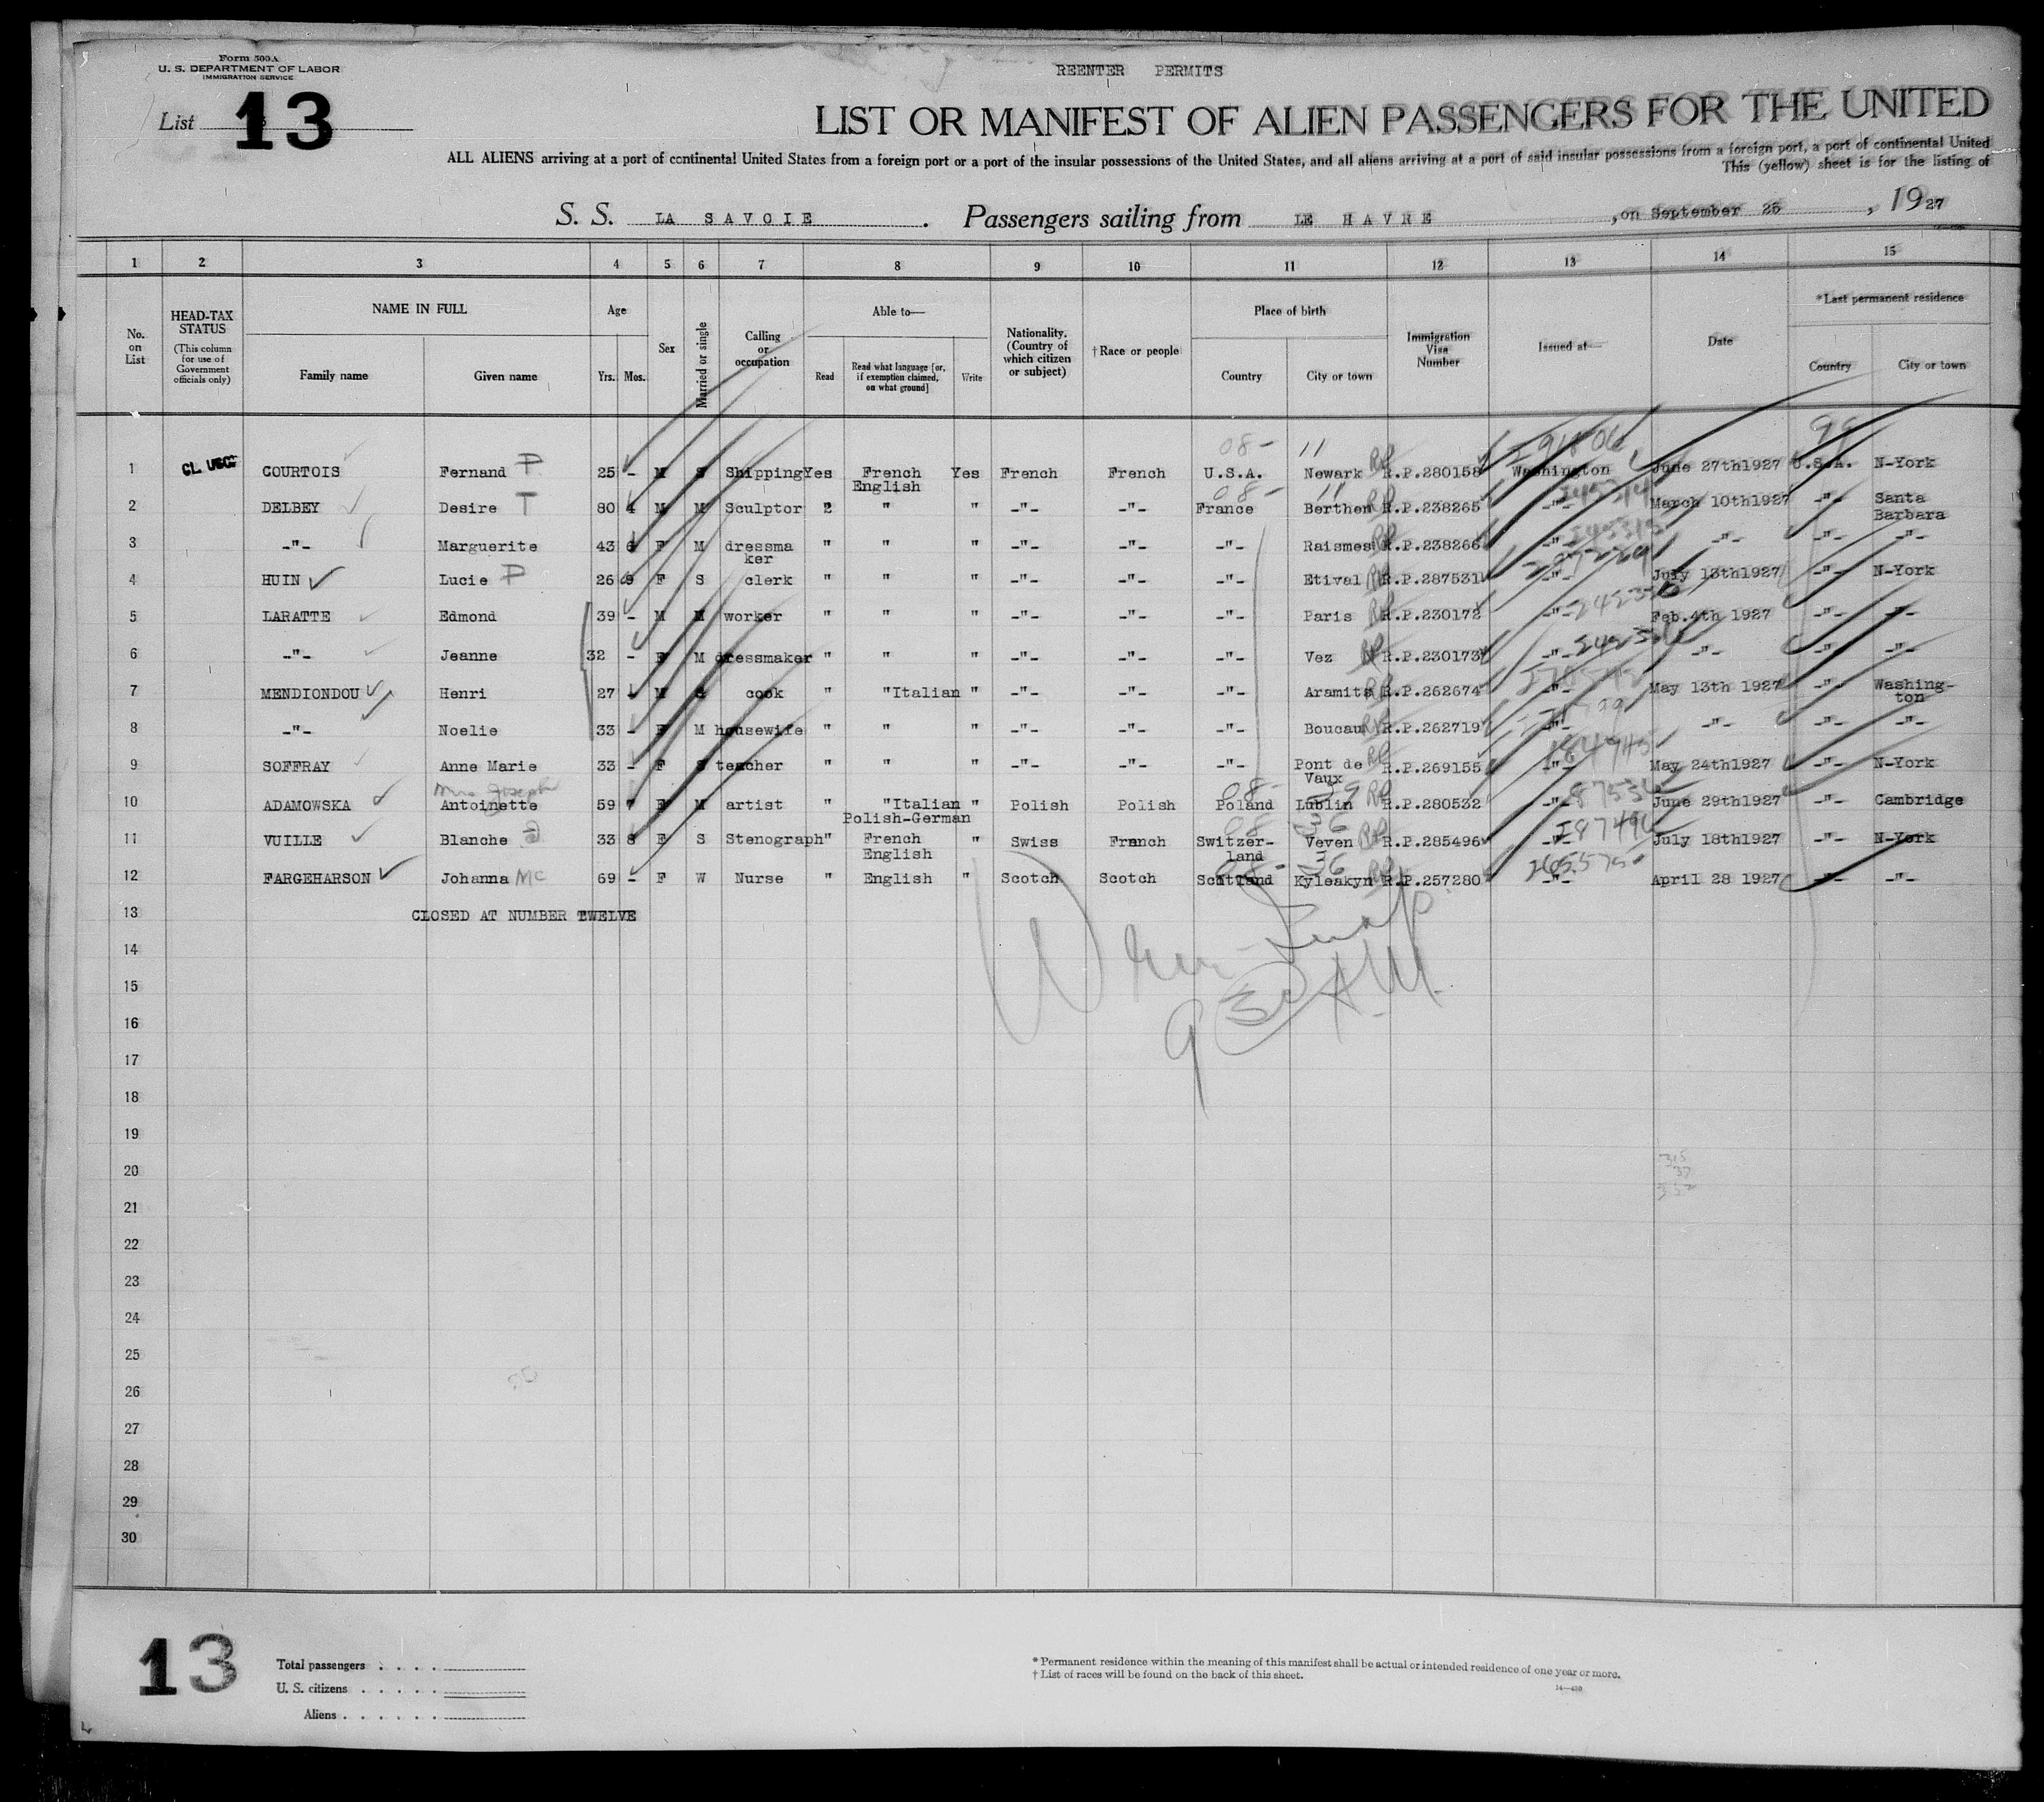 Form 500A
U. S. DEPARTMENT OF LABOR
IMMIGRATION SERVICE
REENTER PERMITS
List 13
LIST OR MANIFEST OF ALIEN PASSENGERS FOR THE UNITED
ALL ALIENS arriving at a port of continental United States from a foreign port or a port of the insular possessions of the United States, and all aliens arriving at a port of said insular possessions from a foreign port, a port of continental United
This (yellow) sheet is for the listing of
S. S. LA SAVOIE. Passengers sailing from LE HAVRE, on September 25, 1927
1 2 3 4 5 6 7 8 9 10 11 12 13 14 15
No. on List
HEAD-TAX STATUS (This column for use of Government officials only)
NAME IN FULL Family name Given name
Age Yrs. Mos.
Sex
Married or single
Calling or occupation
Able to— Read Read what language [or, if exemption claimed, on what ground] Write
Nationality. (Country of which citizen or subject)
†Race or people
Place of birth Country City or town
Immigration Visa Number
Issued at—
Date
*Last permanent residence Country City or town
08- 11 99
1 COURTOIS Fernand P 25 - M S Shipping Yes French English Yes French French U.S.A. Newark RP R.P.280158 Washington June 27th1927 U.S.A. N-York
08- 11
2 DELBEY Desire T 80 4 M M Sculptor " " " -"- -"- France Berthen RP R.P.238265 -"- March 10th1927 -"- Santa Barbara
3 -"- Marguerite 43 6 F M dressma ker " " " -"- -"- -"- Raismes RP R.P.238266 -"- -"- -"- -"-
4 HUIN Lucie P 26 9 F S clerk " " " -"- -"- -"- Etival RP R.P.287531 -"- July 13th1927 -"- N-York
5 LARATTE Edmond 39 - M M worker " " " -"- -"- -"- Paris RP R.P.230172 -"- Feb.4th 1927 -"- -"-
6 -"- Jeanne 32 - F M dressmaker " " " -"- -"- -"- Vez RP R.P.230173 -"- -"- -"- -"-
7 MENDIONDOU Henri 27 - M cook " "Italian " -"- -"- -"- Aramits RP R.P.262674 -"- May 13th 1927 -"- Washing- ton
8 -"- Noelie 33 - F M housewife " " " -"- -"- -"- Boucau RP R.P.262719 -"- -"- -"- -"-
9 SOFFRAY Anne Marie 33 - F S teacher " " " -"- -"- -"- Pont de Vaux RP R.P.269155 -"- May 24th1927 -"- N-York
Mrs Joseph 08- 59
10 ADAMOWSKA Antoinette 59 F M artist " "Italian Polish-German " Polish Polish Poland Lublin RP R.P.280532 -"- June 29th1927 -"- Cambridge
08 36
11 VUILLE Blanche 33 8 F S Stenograph " French English " Swiss French Switzer- land Veven RP R.P.285496 -"- July 18th1927 -"- N-York
08- 36 265575
12 FARGEHARSON Johanna Mc 69 - F W Nurse " English " Scotch Scotch Scotland Kyleakyn RP R.P.257280 -"- April 28 1927 -"- -"-
13 CLOSED AT NUMBER TWELVE
14
15
930 AM
16
17
18
19
20
21
22
23
24
25
26
27
28
29
30
13
Total passengers
U. S. citizens
Aliens
* Permanent residence within the meaning of this manifest shall be actual or intended residence of one year or more.
† List of races will be found on the back of this sheet.
14—420